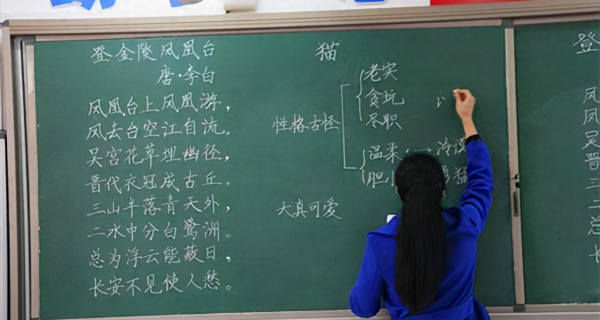 登金陵凤凰台
唐·李白
凤凰台上凤凰游，
凤去台空江自流。
吴宫花草埋幽径，
晋代衣冠成古丘。
三山半落青天外，
二水中分白鹭洲。
总为浮云能蔽日，
长安不见使人愁。
猫
性格古怪
老实
贪玩
尽职
温柔
胆小
猫
天真可爱
登
凤
凤
吴
晋
三
二
总